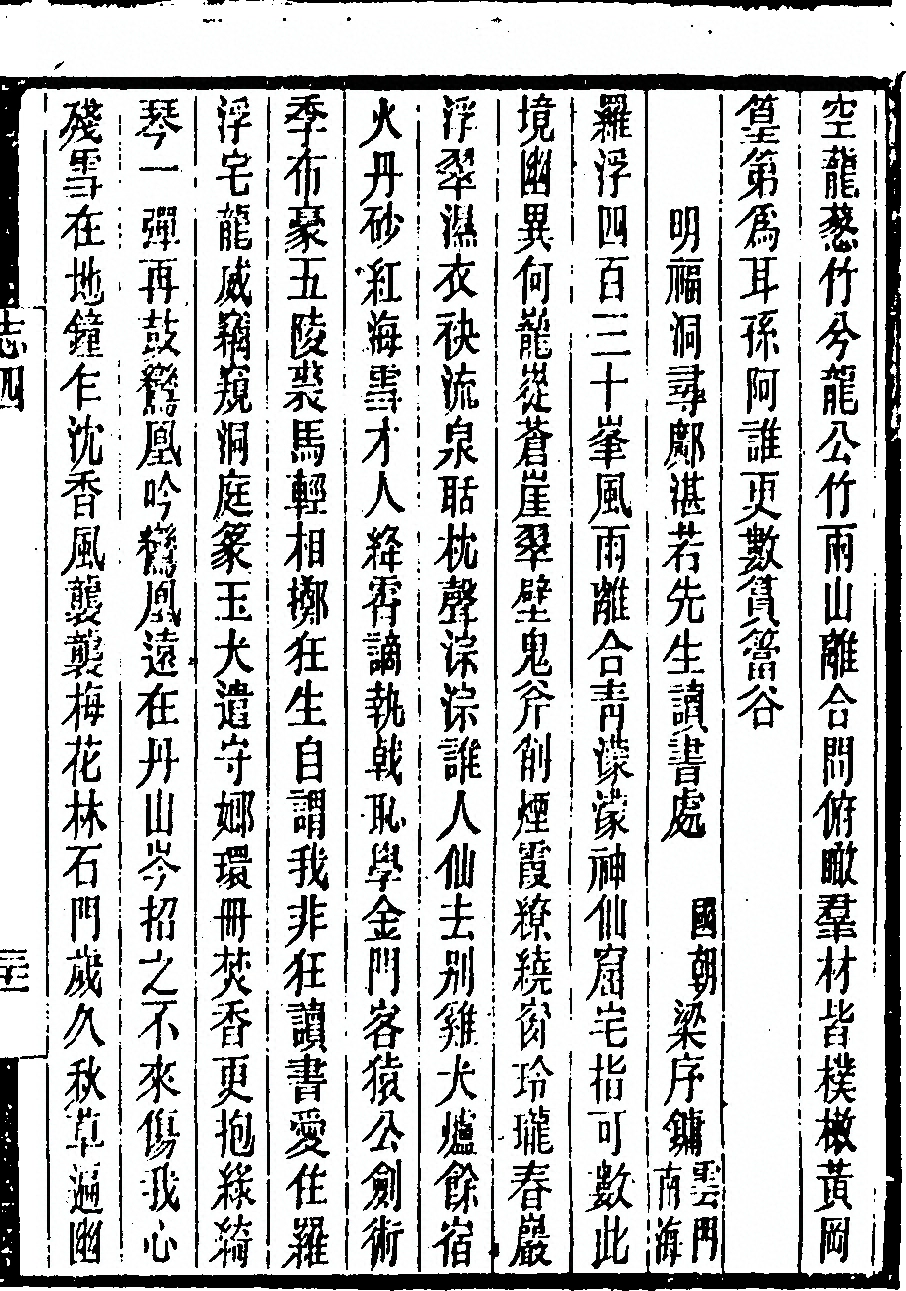 空蘢蔥竹兮龍公竹雨山離合問俯瞰羣材皆樸樕黃岡
篁第爲耳孫阿誰更數篔簹谷
明福洞尋鄺湛若先生讀書處 國朝梁序鏞雲門南海
羅浮四百三十峯風雨離合靑濛濛神仙窟宅指可數此
境幽異何巃嵸蒼崖翠壁鬼斧削煙霞繚繞窗玲瓏春巖
浮翠濕衣袂流泉聒枕聲淙淙誰人仙去別雞犬爐餘宿
火丹砂紅海雪才人絳霄謫執戟恥學金門客猿公劍術
季布豪五陵裘馬輕相擲狂生自謂我非狂讀書愛住羅
浮宅龍威竊窺洞庭篆玉犬遣守嫏環冊焚香更抱綠綺
琴一彈再鼓鸞凰吟鸞凰遠在丹山岑招之不來傷我心
殘雪在地鐘乍沈香風襲襲梅花林石門歲久秋草遍幽
志四
二十二